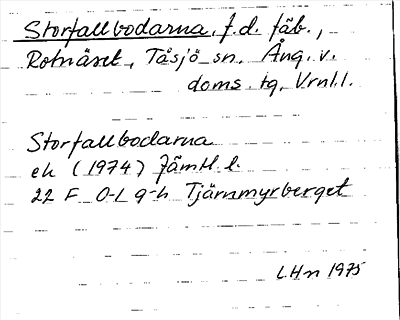 Storfallbodarna, f.d. fäb.,
Rotnäset, Tåsjö sn, Ång. v.
doms. tg, Vrnl.l.
Storfallbodarna
ek (1974) Jämtl. l.
22 F 0-1 g-h Tjärnmyrberget
LHn 1975